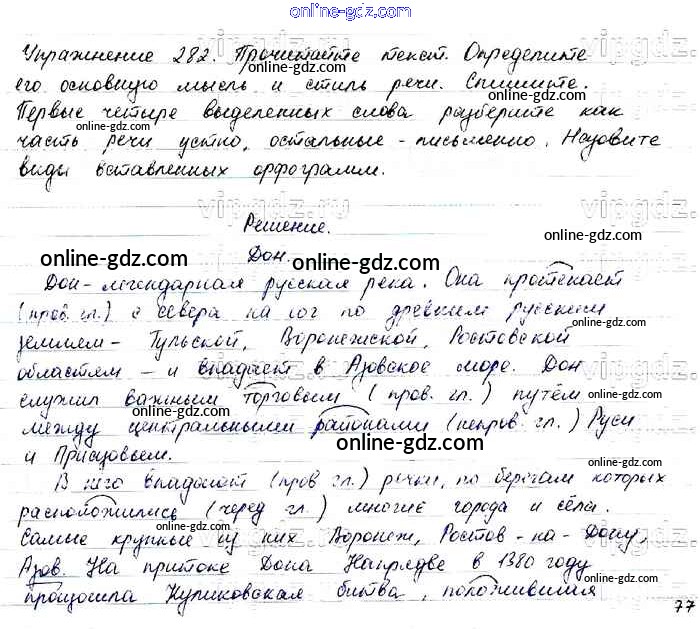 online-gdz.com
Упражнение 282. Прочитайте текст. Определите
его основную мысль и стиль речи. Спишите.
Первые четыре выделенных слова разберите как
часть речи устно, остальные - письменно. Назовите
виды вставленных орфограмм.
Решение.
Дон.
Дон - легендарная русская река. Она протекает
(пров. гл.) с севера на юг по древним русским
землям - Тульской, Воронежской, Ростовской
областям - и впадает в Азовское море. Дон
служил важным торговым (пров. гл.) путём
между центральными районами (непров. гл.) Руси
и Приазовьем.
В него впадают (пров гл.) речки, по берегам которых
расположились (черед гл.) многие города и сёла.
Самые крупные из них Воронеж, Ростов - на - Дону,
Азов. На притоке Дона Непрядве в 1380 году
произошла Куликовская битва, положившая
77